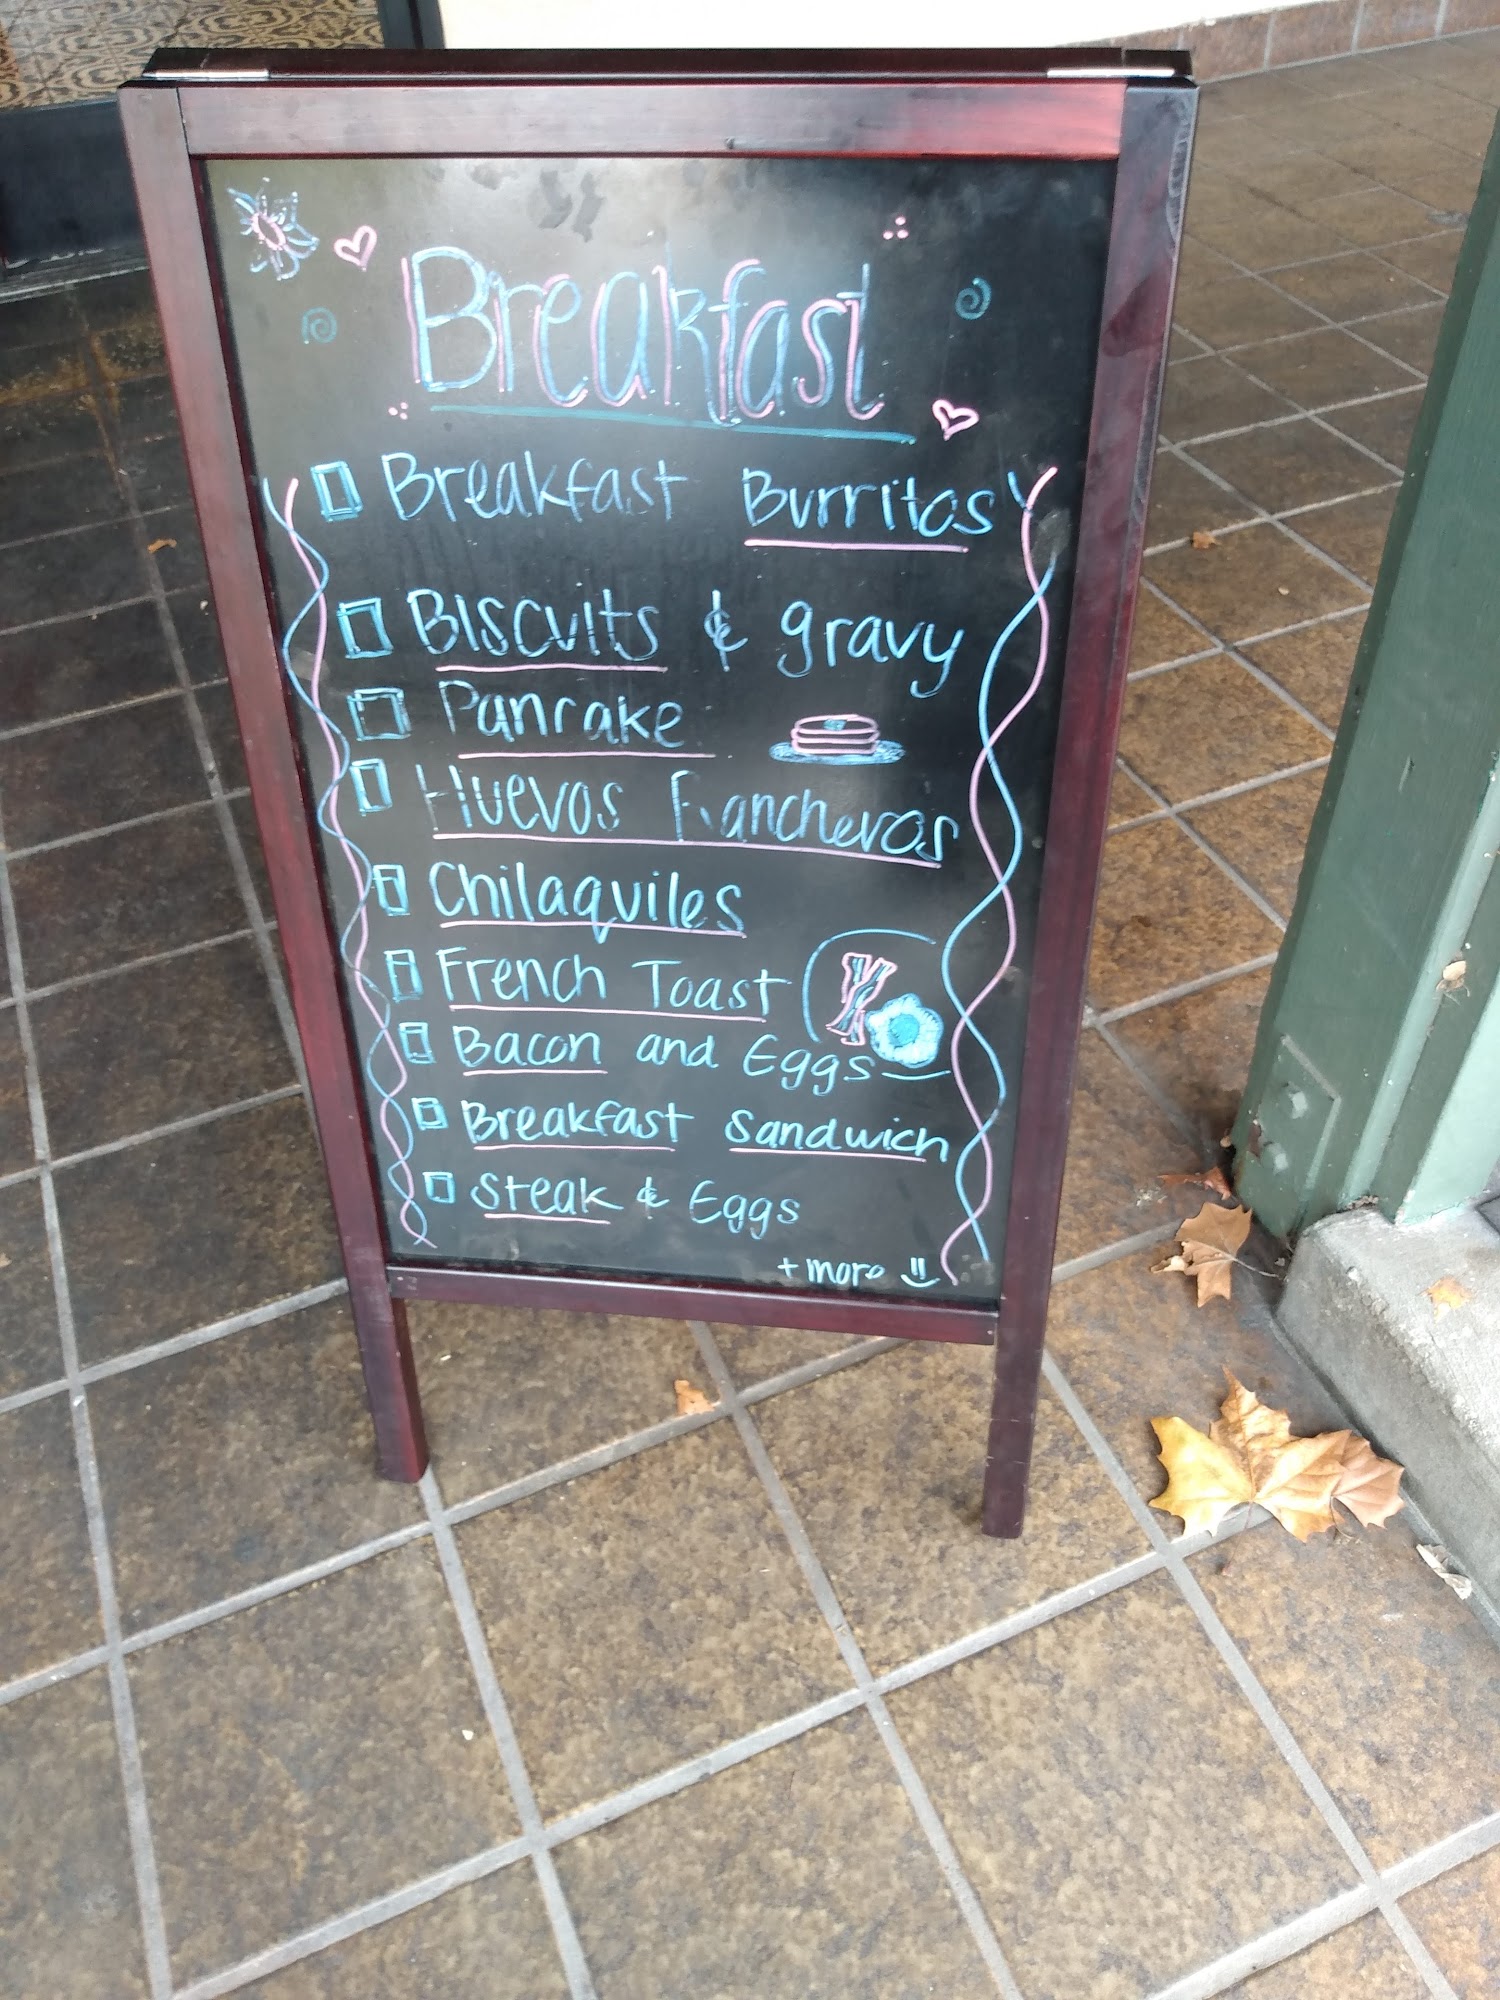 Breakfast
Breakfast Burritos
Biscuits & gravy
Pancake
Huevos Rancheros
Chilaquiles
French Toast
Bacon and Eggs
Breakfast Sandwich
Steak & Eggs
+ more